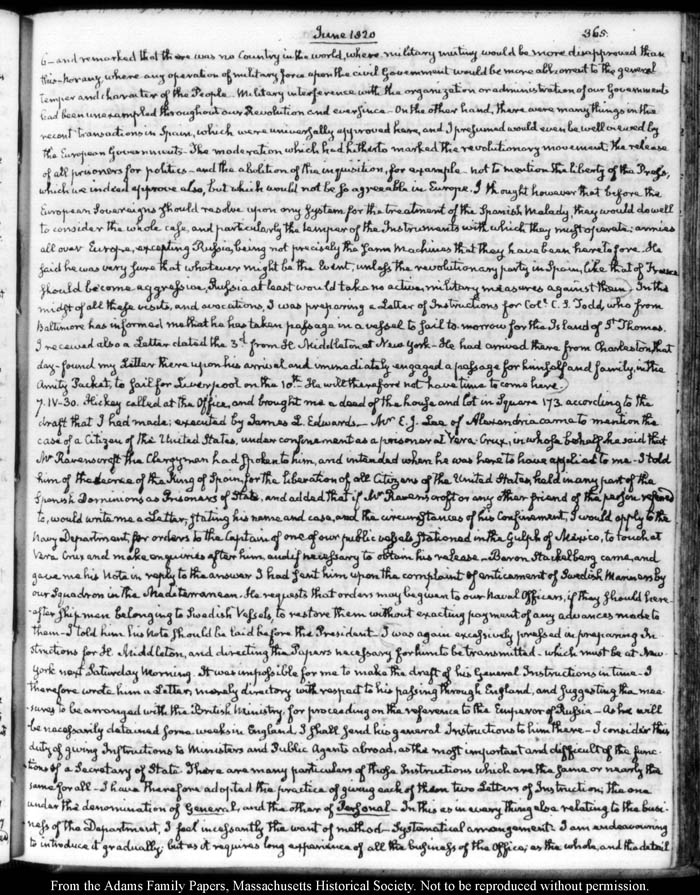 June 1820 365.
6— and remarked that there was no Country in the world, where military mutiny would be more disapproved than
this— nor any, where any operation of military force upon the civil Government would be more abhorrent to the general
temper and character of the People— Military interference with the organization or administration of our Governments
had been unexampled throughout our Revolution and ever since— On the other hand, there were many things in the
recent transactions in Spain, which were universally approved here, and I presumed would even be well viewed by
the European Governments— The moderation which had hitherto marked the revolutionary movement; the release
of all prisoners for politics— and the abolition of the inquisition, for example— not to mention the liberty of the Press,
which we indeed approve also, but which would not be so agreeable in Europe. I thought however that before the
European Sovereigns should resolve upon any System for the treatment of the Spanish Malady, they would do well
to consider the whole case, and particularly the temper of the Instruments with which they must operate; armies
all over Europe, excepting Russia, being not precisely the same Machines that they have been heretofore. He
said he was very sure that whatever might be the Event, unless the revolutionary party in Spain, like that of France
should become aggressive, Russia at least would take no active, military measures against them. In the
midst of all these visits, and avocations, I was preparing a Letter of Instructions for Col. C. S. Todd, who from
Baltimore has informed me that he has taken passage in a vessel to sail to-morrow for the Island of St. Thomas.
I received also a Letter dated the 3d. from H. Middleton at New York— He had arrived there from Charleston that
day— found my Letter there upon his arrival and immediately engaged a passage for himself and family, in the
Amity Packet, to sail for Liverpool on the 10th. He will therefore not have time to come here.
7. IV—30. Hickey called at the Office, and brought me a deed of the house and lot in Square 173. according to the
draft that I had made; executed by James L. Edwards— Mr. E. J. Lee of Alexandria came to mention the
case of a Citizen of the United States, under confinement as a prisoner at Vera Crux, in whose behalf he said that
Mr. Ravenscroft the Clergyman had spoken to him, and intended when he was here to have applied to me— I told
him of the decree of the King of Spain, for the liberation of all Citizens of the United States, held in any part of the
Spanish Dominions as Prisoners of State, and added that if Mr. Ravenscroft or any other friend of the person referred
to, would write me a Letter, stating his name and case, and the circumstances of his Confinement, I would apply to the
Navy Department, for orders to the Captain of one of our public vessels stationed in the Gulph of Mexico, to touch at
Vera Crus and make enquiries after him, and if necessary to obtain his release— Baron Stackelberg came, and
gave me his Note in reply to the answer I had sent him upon the complaint of enticement of Swedish Mariners by
our Squadron in the Mediterranean. He requests that orders may be given to our Naval Officers, if they should here-
-after ship men belonging to Swedish Vessels, to restore them without exacting payment of any advances made to
them— I told him his Note should be laid before the President— I was again excessively pressed in preparing In-
structions for H. Middleton, and directing the Papers necessary for him to be transmitted— which must be at New
York next Saturday Morning. It was impossible for me to make the draft of his General Instructions in time— I
therefore wrote him a Letter, merely directory with respect to his passing through England, and suggesting the mea-
sures to be arranged with the British Ministry, for proceeding on the reference to the Emperor of Russia— As he will
be necessarily detained some weeks in England I shall send his general Instructions to him there— I consider this
duty of giving Instructions to Ministers and Public Agents abroad, as the most important and difficult of the func-
tions of a Secretary of State. There are many particulars of those Instructions which are the same or nearly the
same for all— I have therefore adopted the practice of giving each of them two Letters of Instruction; the one
under the denomination of General, and the other of Personal— In this as in every thing else relating to the busi-
ness of the Department, I feel incessantly the want of method— Systematical arrangement. I am endeavouring
to introduce it gradually; but as it requires long experience of all the business of the Office, as the whole, and the detail
From the Adams Family Papers, Massachusetts Historical Society. Not to be reproduced without permission.